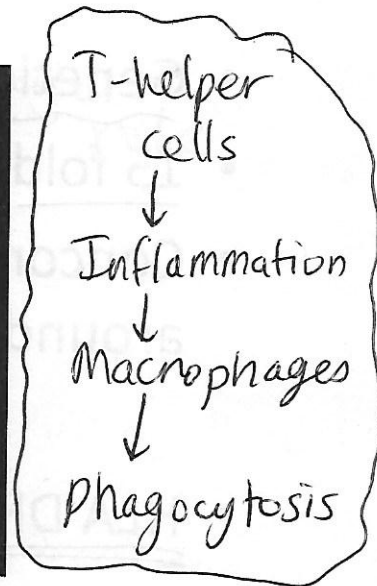 T-helper
cells
↓
Inflammation
↓
Macrophages
↓
Phagocytosis